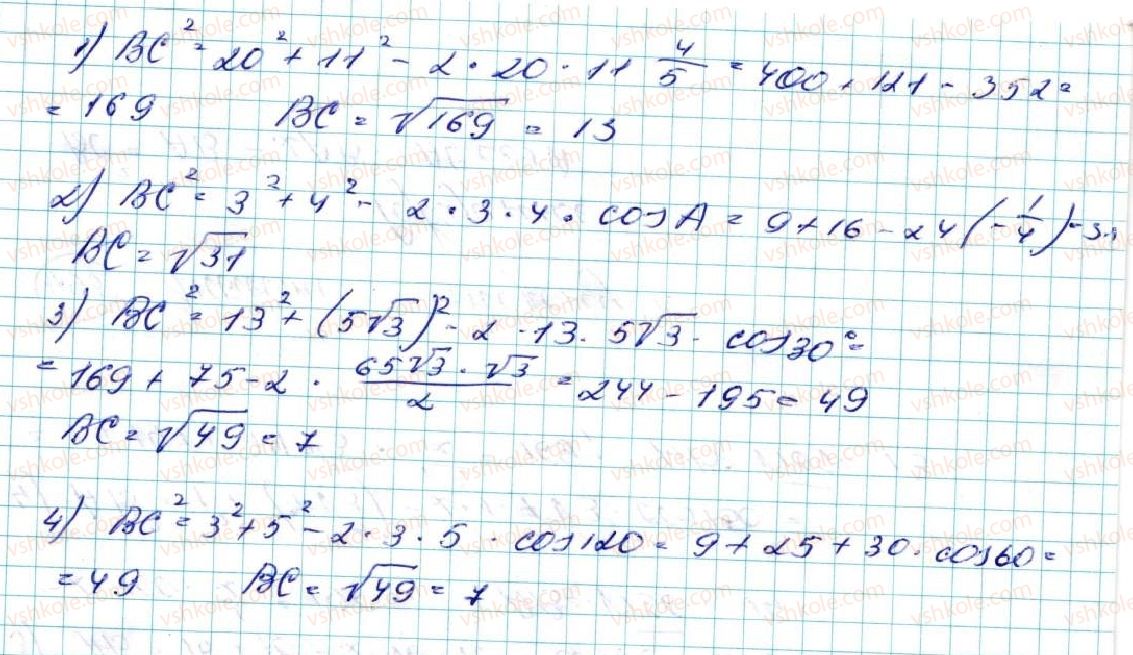 1) BC² = 20² + 11² - 2 · 20 · 11 4/5 = 400 + 121 - 352 =
= 169 BC = √169 = 13
2) BC² = 3² + 4² - 2 · 3 · 4 · cos A = 9 + 16 - 24 (-1/4) =
BC = √31
3) BC² = 13² + (5√3)² - 2 · 13 · 5√3 · cos 30° =
= 169 + 75 - 2 · 65√3 · √3 / 2 = 244 - 195 = 49
BC = √49 = 7
4) BC² = 3² + 5² - 2 · 3 · 5 · cos 120 = 9 + 25 + 30 · cos 60 =
= 49 BC = √49 = 7
vshkole.com